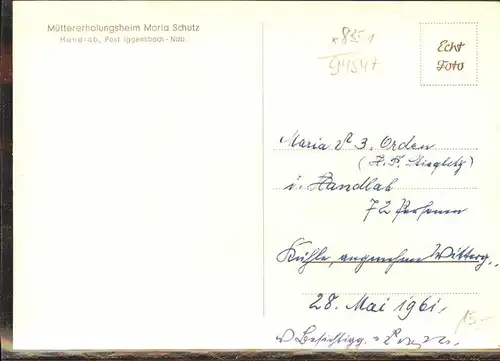 Müttererholungsheim Maria Schutz
Handlab, Post Iggensbach - Ndb.
9484+
Echt
Foto
Maria 3. Orden
i. Handlab
72 Personen
Kühle, angenehme Witterg.
28. Mai 1961,
15.-